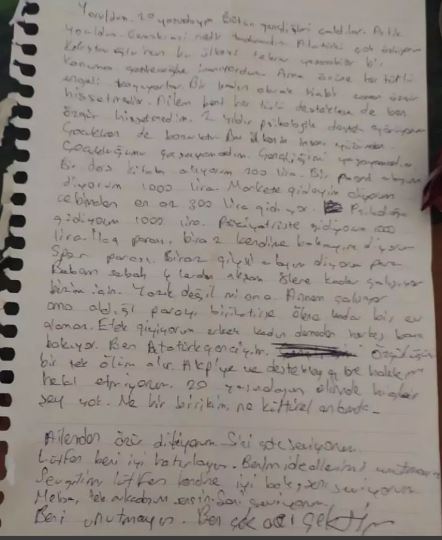 Yoruldum. 20 yaşındayım Bütün gençliğimi çaldılar. Artık
yoruldum. Atatürkü çok
bir ülkenin tekrar bir
konuma inanıyordum. Ama önüne her türlü
engeli koyuyorlar. Bir kadın olarak hiçbir zaman özgür
hissetmedim. Ailem beni her türlü desteklese de ben
özgür hissetmedim. 2 yıldır psikolojik destek görüyorum
Çocukken de Bu ülkede insan
Çocukluğumu yaşayamadım. Gençliğimi yaşayamadım
Bir ders kitabı alıyorum 200 lira. Bir
diyorum 1000 lira. Markete gideyim diyorum
cebimden en az 300 lira gidiyor. Psikoloğa
gidiyorum 1000 lira. Psikiyatriste gidiyorum
lira. İlaç parası, biraz kendime bakayım diyorum
Spor parası. Biraz alayım diyorum para
Babam sabah akşam kadar çalışıyor
bizim için. Yazık değil mi ona. Annem çalışıyor
ama aldığı parayı biriktirse ölene kadar bir ev
alamaz. Etek giyiyorum erkek kadın demeden herkes bana
bakıyor. Ben Atatürk genciyim. Özgürlüğümü
bir tek ölüm alır. Akp'ye ve destekçi
helal etmiyorum. 20 yaşındayım elimde hiçbir
şey yok. Ne bir birikim, ne kültürel
Ailemden özür diliyorum. Sizi çok seviyorum.
Lütfen beni iyi hatırlayın. Benim ideallerimi unutmayın
Sevgilim lütfen kendine iyi bak, seni seviyorum
Melisa, tek arkadaşım seni seviyorum
Beni unutmayın. Ben çok acı çektim